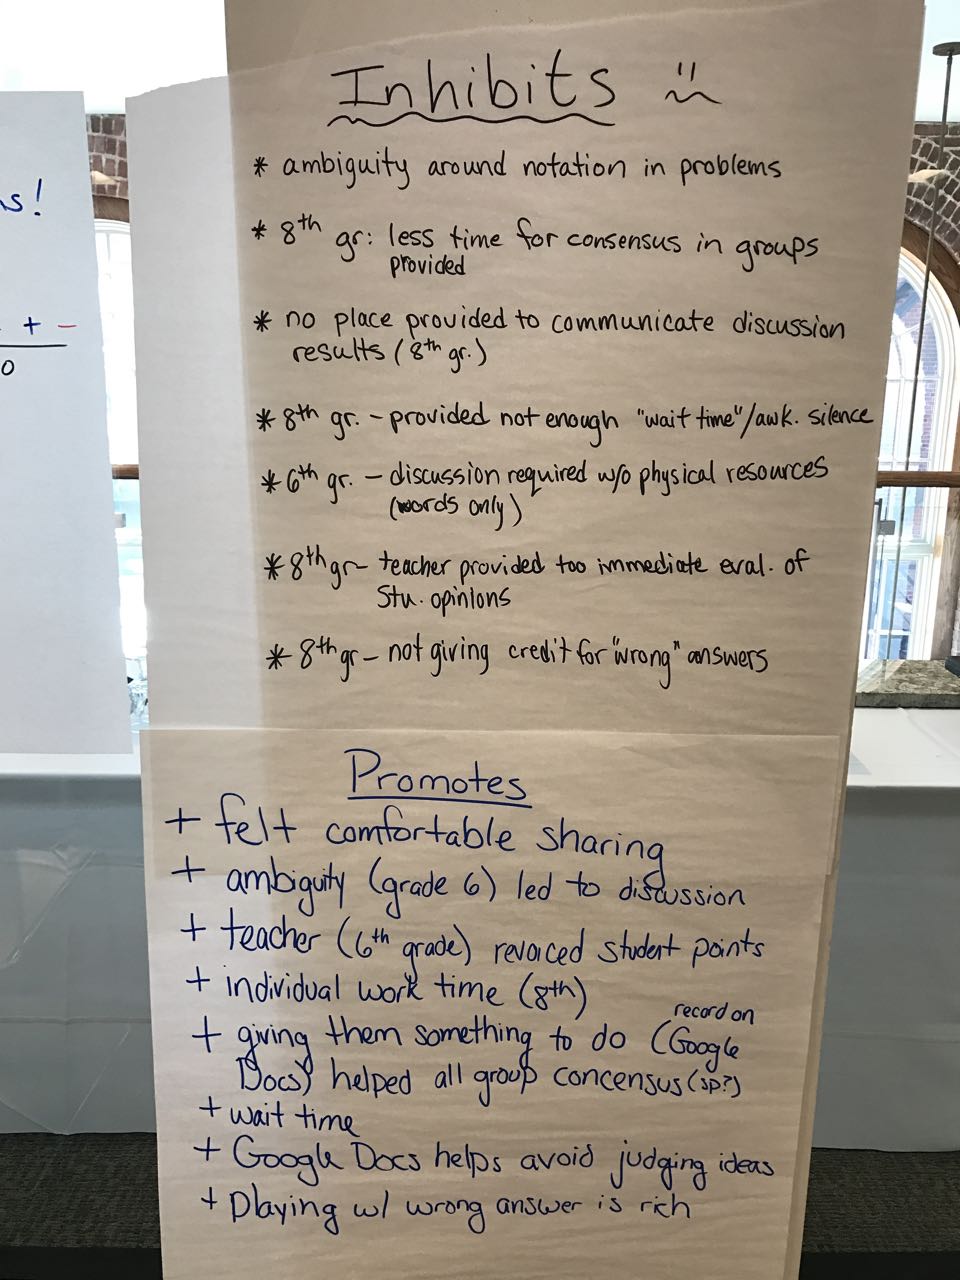 s!
+ -
0
Inhibits
* ambiguity around notation in problems
* 8th gr: less time for consensus in groups
provided
* no place provided to communicate discussion
results (8th gr.)
* 8th gr. - provided not enough "wait time"/awk. silence
* 6th gr. - discussion required w/o physical resources
(words only)
* 8th gr- teacher provided too immediate eval. of
Stu. opinions
* 8th gr - not giving credit for "wrong" answers
Promotes
+ felt comfortable sharing
+ ambiguity (grade 6) led to discussion
+ teacher (6th grade) revoiced student points
+ individual work time (8th)
record on
+ giving them something to do (Google
Docs) helped all group concensus (sp?)
+ wait time
+ Google Docs helps avoid judging ideas
+ Playing w/ wrong answer is rich